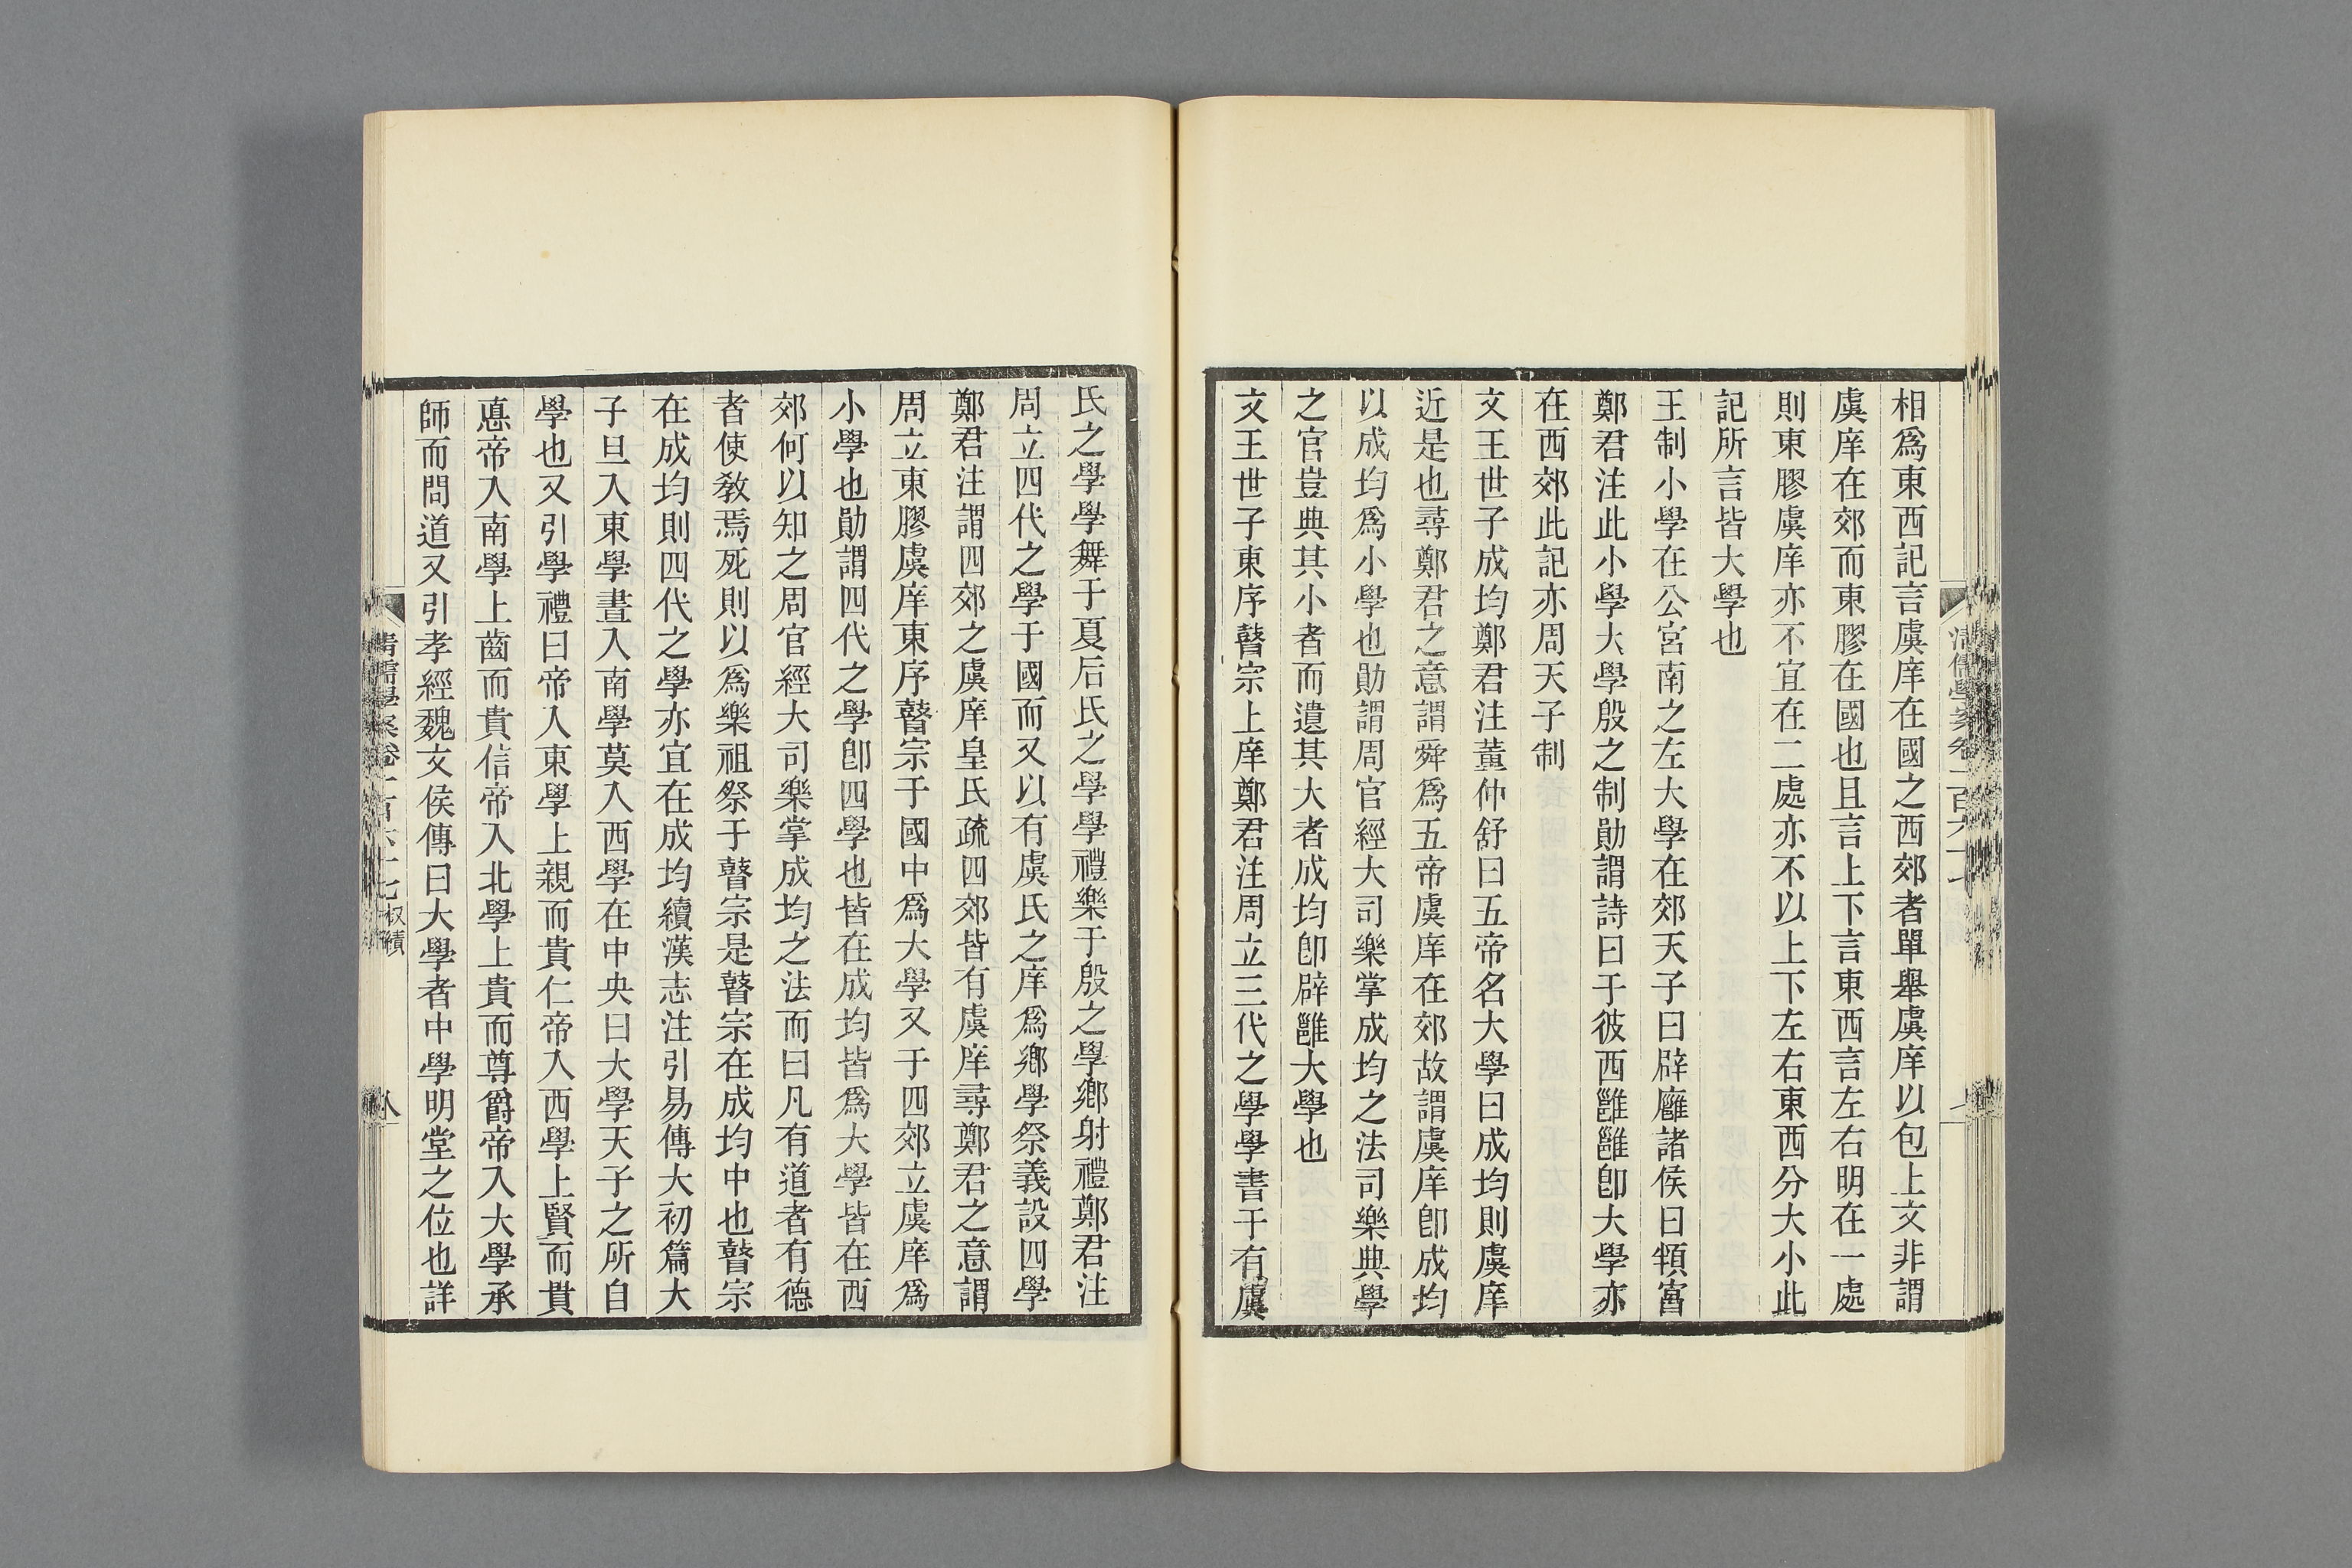 相爲東西記言虞庠在國之西郊者單舉虞庠以包上文非謂
虞庠在郊而東膠在國也且言上下言東西言左右明在一處
則東膠虞庠亦不宜在二處亦不以上下左右東西分大小此
記所言皆大學也
王制小學在公宮南之左大學在郊天子曰辟廱諸侯曰頖宮
鄭君注此小學大學殷之制勛謂詩曰于彼西雝雝卽大學亦
在西郊此記亦周天子制
文王世子成均鄭君注董仲舒曰五帝名大學曰成均則虞庠
近是也尋鄭君之意謂舜爲五帝虞庠在郊故謂虞庠卽成均
以成均爲小學也勛謂周官經大司樂掌成均之法司樂典學
之官豈典其小者而遺其大者成均卽辟雝大學也
文王世子東序瞽宗上庠鄭君注周立三代之學學書于有虞
氏之學學舞于夏后氏之學學禮樂于殷之學鄉射禮鄭君注
周立四代之學于國而又以有虞氏之庠爲鄉學祭義設四學
鄭君注謂四郊之虞庠皇氏疏四郊皆有虞庠尋鄭君之意謂
周立東膠虞庠東序瞽宗于國中爲大學又于四郊立虞庠爲
小學也勛謂四代之學卽四學也皆在成均皆爲大學皆在西
郊何以知之周官經大司樂掌成均之法而曰凡有道者有德
者使敎焉死則以爲樂祖祭于瞽宗是瞽宗在成均中也瞽宗
在成均則四代之學亦宜在成均續漢志注引易傳大初篇大
子旦入東學晝入南學莫入西學在中央曰大學天子之所自
學也又引學禮曰帝入東學上親而貴仁帝入西學上賢而貴
悳帝入南學上齒而貴信帝入北學上貴而尊爵帝入大學承
師而問道又引孝經魏文侯傳曰大學者中學明堂之位也詳
清儒學案卷
八